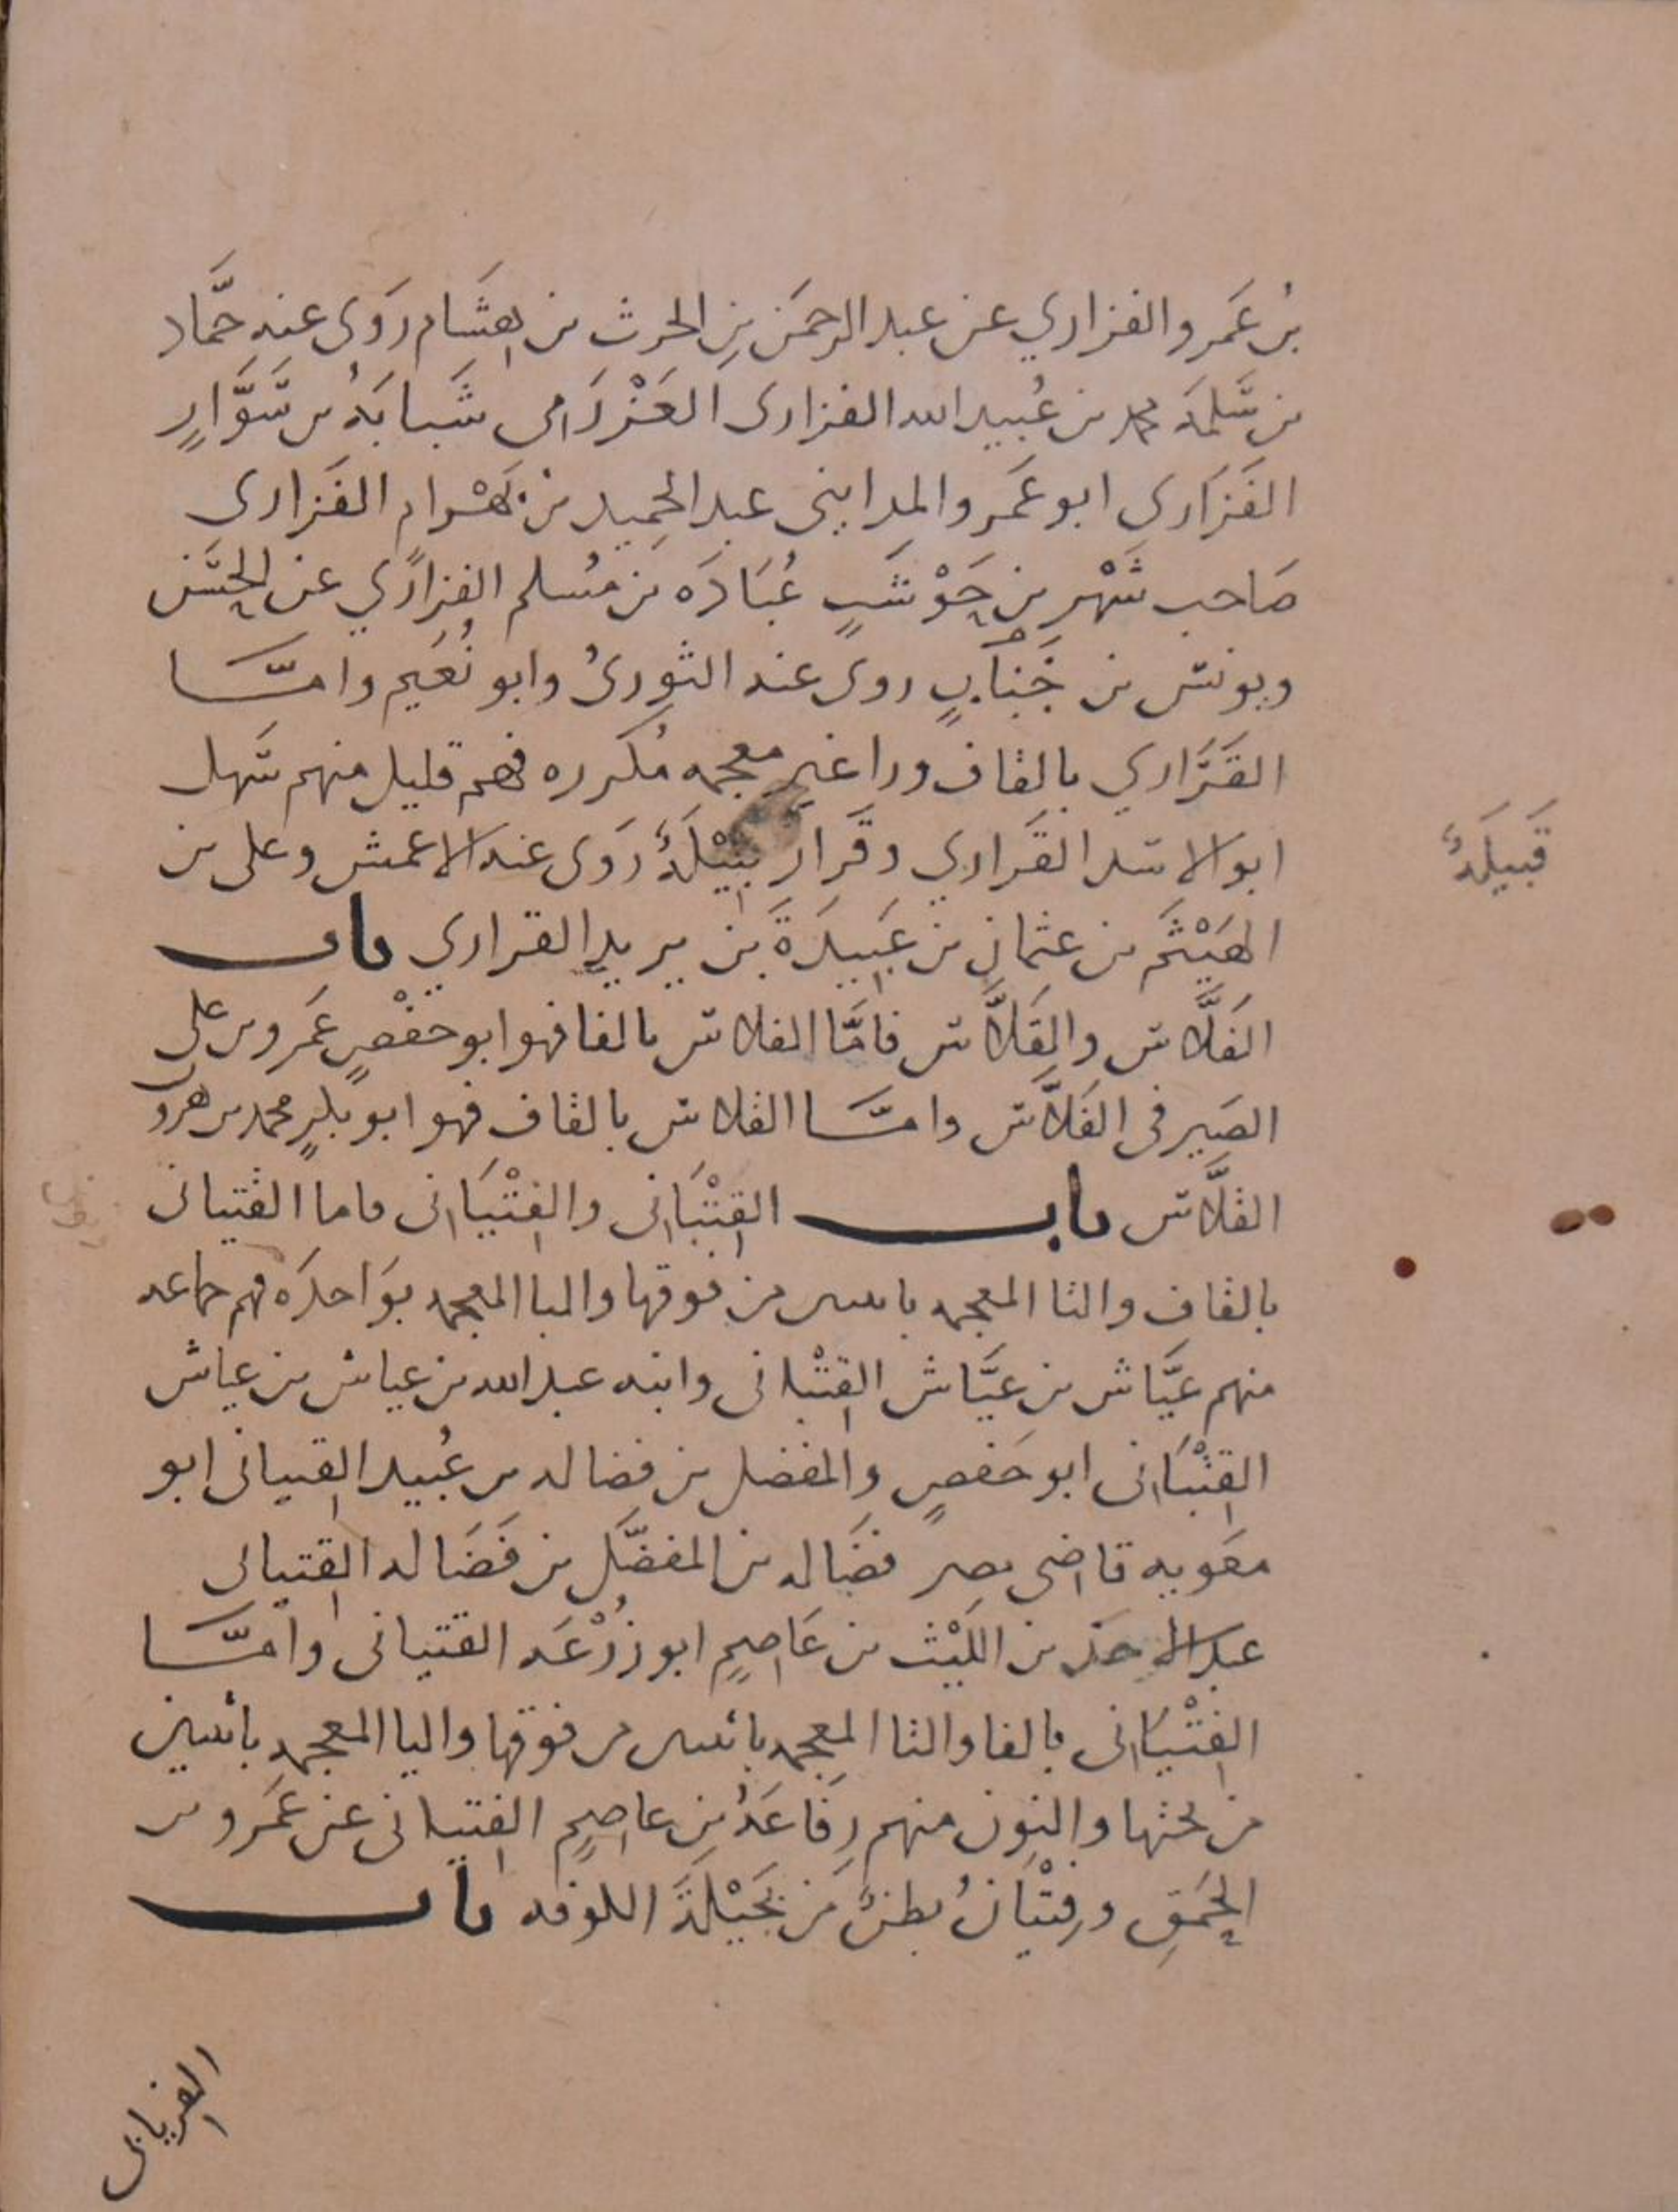 بنُ عَمَرو الفزاري عن عبد الرحمَن بنِ الحرث بن هِشَام رَوَى عنه حمَّاد
بن سَلمَه محمد بن عُبيد الله الفزارى العَرْزَمى شَبابَهُ بن سَوَّارٍ
الفَزَارى ابو عَمَرو المدايني عبد الحمِيد بن بَهْرام الفَزارى
صَاحب شَهْر بن حَوْشَبٍ عُبَادَه بن مُسلم الفزَاري عن الحسَن
ويونس بن خَبَّابٍ روى عنه الثوِرىُ وابو نُعَيم وامَّا
القَرَاري بالقاف ورا غير معجمه مُكرره فهم قليل منهم سَهل
ابو الاسد القَراري وقَرار قَبِيْلَةٌ رَوَى عنه الاعمش وعلى بن
قَبيَلةٌ
الهَيْثَم بن عثمان بن عَبِيدَةَ بن يزيد القراري باب
الفَلَّاس والقَلَّاس فامَّا الفلاس بالفا فهو ابو حفْصٍ عَمَرو بن على
الصَيرفى الفَلَّاس وامَّا القلاس بالقاف فهو ابو بكرٍ محمد بن هرون
القلَّاس باب القِتْبَانى والفِتْيَانى فاما القتبانى
بالقاف والتا المعجمه باثنين من فوقها والبا المعجمه بوَاحدَه فهم جماعه
منهم عَيَّاش بن عَيَّاش القِتْبانى وابنه عبد الله بن عياش بن عياش
القِتْبَانى ابو حَفصٍ والمفضل بن فضاله بن عُبيد القتبانى ابو
معَويه قاضى مصر فضَاله بن المفضَّل بن فَضَاله القتبانى
عبد الاحَد بن اللَيْث بن عَاصِمٍ ابو زُرْعَه القتبانى وامَّا
الفِتْيَانى بالفا والتا المعجمه باثنين من فوقها واليا المعجمه باثنين
من تحتها والنون منهم رِفَاعَهُ بنِ عاصِمٍ الفتيانى عن عَمَرو بن
الحَمِقِ وفِتْيَانُ بطنٌ مَن بَجَيْلَةَ الكوفه باب
الفريابى